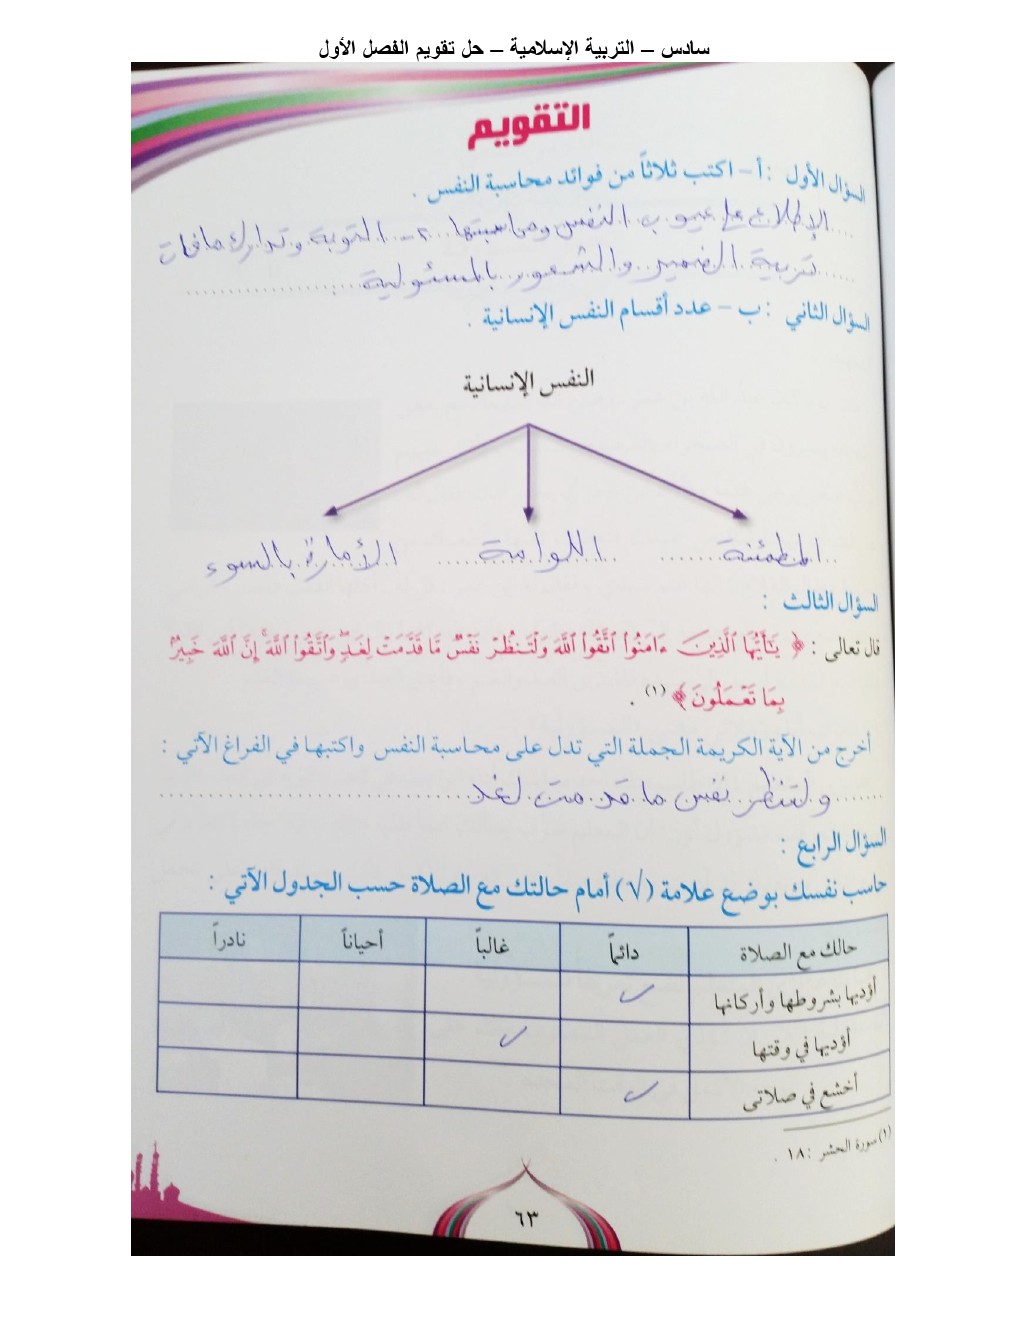 سادس – التربية الإسلامية – حل تقويم الفصل الأول
التقويم
السؤال الأول : أ – اكتب ثلاثاً من فوائد محاسبة النفس .
الإطلاع على عيوب النفس ومحاسبتها ٢- التوبة وتدارك ما فات
تربية الضمير والشعور بالمسئولية
السؤال الثاني : ب – عدد أقسام النفس الإنسانية .
النفس الإنسانية
المطمئنة اللوامة الأمارة بالسوء
السؤال الثالث :
قال تعالى : ﴿ يَٰٓأَيُّهَا ٱلَّذِينَ ءَامَنُوا۟ ٱتَّقُوا۟ ٱللَّهَ وَلْتَنظُرْ نَفْسٌ مَّا قَدَّمَتْ لِغَدٍ ۖ وَٱتَّقُوا۟ ٱللَّهَ ۚ إِنَّ ٱللَّهَ خَبِيرٌۢ
بِمَا تَعْمَلُونَ ﴾ (١) .
أخرج من الآية الكريمة الجملة التي تدل على محاسبة النفس واكتبها في الفراغ الآتي :
ولتنظر نفس ما قدمت لغد
السؤال الرابع :
حاسب نفسك بوضع علامة (√) أمام حالتك مع الصلاة حسب الجدول الآتي :
حالك مع الصلاة دائماً غالباً أحياناً نادراً
أؤديها بشروطها وأركانها ✓
أؤديها في وقتها ✓
أخشع في صلاتي ✓
(١) سورة الحشر : ١٨ .
٦٣